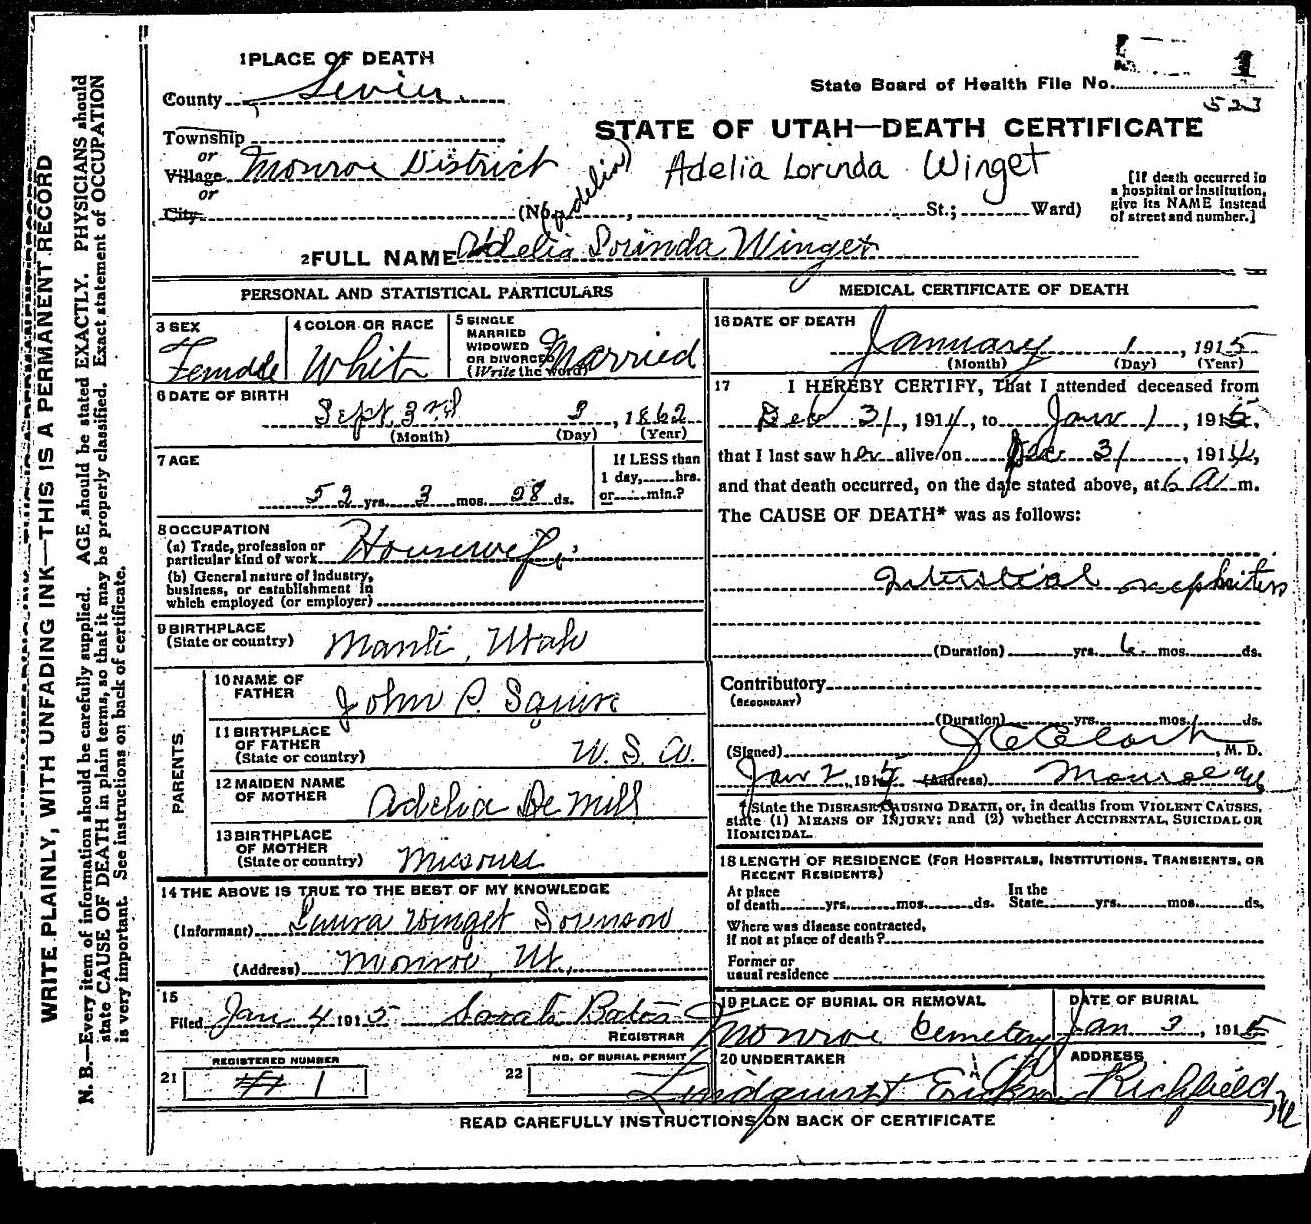 WRITE PLAINLY, WITH UNFADING INK—THIS IS A PERMANENT RECORD
N. B.—Every item of information should be carefully supplied. AGE should be stated EXACTLY. PHYSICIANS should
state CAUSE OF DEATH in plain terms, so that it may be properly classified. Exact statement of OCCUPATION
is very important. See instructions on back of certificate.
1 PLACE OF DEATH
County Sevier
State Board of Health File No. 1
523
STATE OF UTAH—DEATH CERTIFICATE
Township
or
Village Monroe District
or
City
(Adelin)
Adelia Lorinda Winget
(No. , St.; Ward)
[If death occurred in
a hospital or institution,
give its NAME instead
of street and number.]
2 FULL NAME Adelia Lorinda Winget
PERSONAL AND STATISTICAL PARTICULARS
3 SEX
Female
4 COLOR OR RACE
Whit
5 SINGLE
MARRIED
WIDOWED
OR DIVORCED
(Write the word)
Married
6 DATE OF BIRTH
Sept. 3rd 3, 1862
(Month) (Day) (Year)
7 AGE
52 yrs. 3 mos. 28 ds.
If LESS than
1 day, hrs.
or min.?
8 OCCUPATION
(a) Trade, profession or
particular kind of work Housewife
(b) General nature of industry,
business, or establishment in
which employed (or employer)
9 BIRTHPLACE
(State or country) Manti, Utah
PARENTS
10 NAME OF
FATHER John P. Squire
11 BIRTHPLACE
OF FATHER
(State or country) U. S. A.
12 MAIDEN NAME
OF MOTHER Adelia De Mill
13 BIRTHPLACE
OF MOTHER
(State or country) Missouri
14 THE ABOVE IS TRUE TO THE BEST OF MY KNOWLEDGE
(Informant) Laura Winget Sorenson
(Address) Monroe, Ut.
15
Filed Jan 4 1915 Sarah Bates
REGISTRAR
REGISTERED NUMBER
21 #1 1
NO. OF BURIAL PERMIT
22
MEDICAL CERTIFICATE OF DEATH
16 DATE OF DEATH
January 1, 1915
(Month) (Day) (Year)
17 I HEREBY CERTIFY, That I attended deceased from
Dec 31, 1914, to Jan 1, 1915,
that I last saw her alive on Dec 31, 1914,
and that death occurred, on the date stated above, at 6 A m.
The CAUSE OF DEATH* was as follows:
Interstitial nephritis
(Duration) yrs. 6 mos. ds.
Contributory
(SECONDARY)
(Duration) yrs. mos. ds.
(Signed) Clark, M. D.
Jan 2, 1915 (Address) Monroe Ut
*State the DISEASE CAUSING DEATH, or, in deaths from VIOLENT CAUSES,
state (1) MEANS OF INJURY; and (2) whether ACCIDENTAL, SUICIDAL OR
HOMICIDAL.
18 LENGTH OF RESIDENCE (FOR HOSPITALS, INSTITUTIONS, TRANSIENTS, OR
RECENT RESIDENTS)
At place
of death yrs. mos. ds.
In the
State yrs. mos. ds.
Where was disease contracted,
If not at place of death?
Former or
usual residence
19 PLACE OF BURIAL OR REMOVAL
Monroe Cemetery
DATE OF BURIAL
Jan 3, 1915
20 UNDERTAKER
Lindquist
ADDRESS
Richfield
READ CAREFULLY INSTRUCTIONS ON BACK OF CERTIFICATE